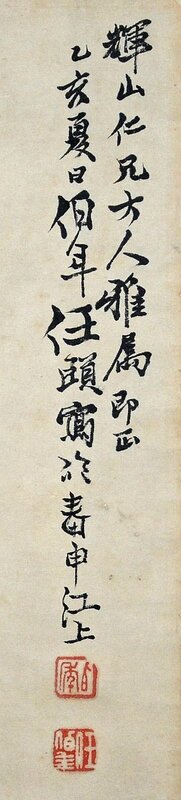 輝山仁兄大人雅屬即正
乙亥夏日伯年任頤寫於春申江上